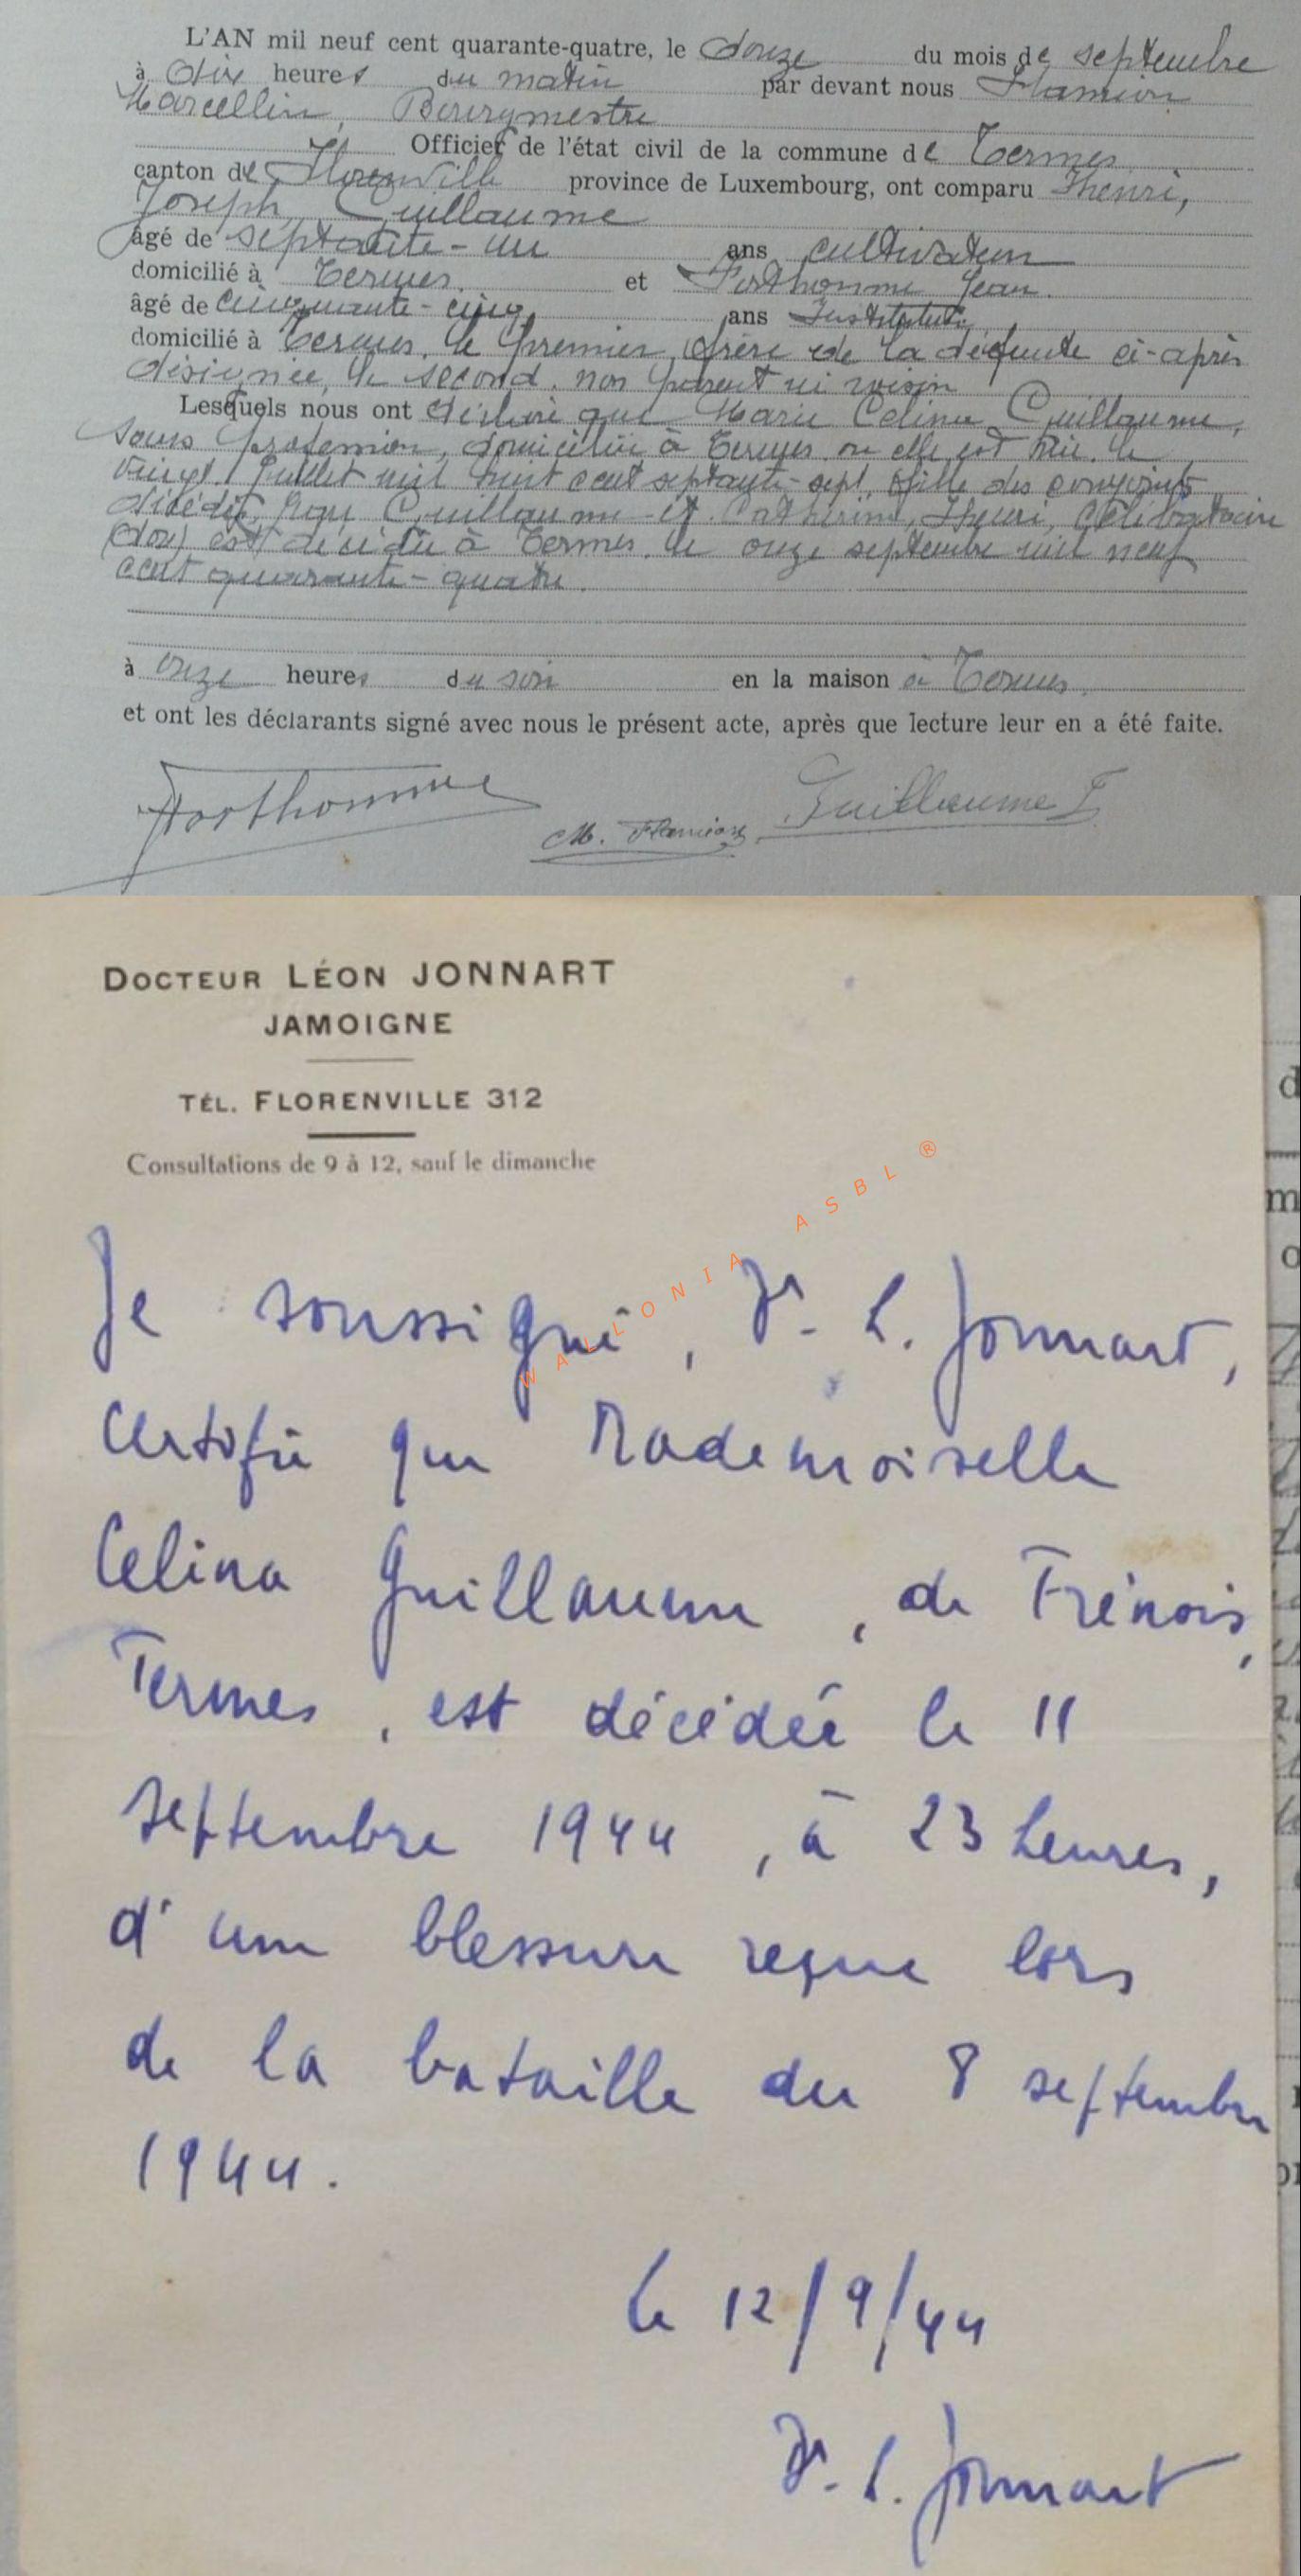 L'AN mil neuf cent quarante-quatre, le douze du mois de septembre
à dix heures du matin par devant nous Flamion
Marcellin, Bourgmestre
Officier de l'état civil de la commune de Termes
canton de Florenville province de Luxembourg, ont comparu Henri,
Joseph Guillaume
âgé de septante-un ans cultivateur
domicilié à Termes. et Forthomme Jean.
âgé de cinquante-cinq ans
domicilié à Termes. le premier, frère de la défunte ci-après
désignée, le second. non parent ni voisin
Lesquels nous ont déclaré que Marie Celina Guillaume,
sans profession, domiciliée à Termes où elle est née. le
vingt juillet mil huit cent septante-sept, fille des conjoints
décédés, Guillaume et Catherine, Henri, célibataire
est décédée à Termes. le onze septembre mil neuf
cent quarante-quatre.
à onze heures du soir en la maison à Termes.
et ont les déclarants signé avec nous le présent acte, après que lecture leur en a été faite.
Forthomme
M. Flamion
Guillaume
DOCTEUR LÉON JONNART
JAMOIGNE
TÉL. FLORENVILLE 312
Consultations de 9 à 12, sauf le dimanche
WALLONIA ASBL ®
Je soussigné, Dr. L. Jonnart,
certifie que Mademoiselle
Celina Guillaume, de Frénois,
Termes, est décédée le 11
septembre 1944, à 23 heures,
d'une blessure reçue lors
de la bataille du 8 septembre
1944.
le 12/9/44
Dr. L. Jonnart